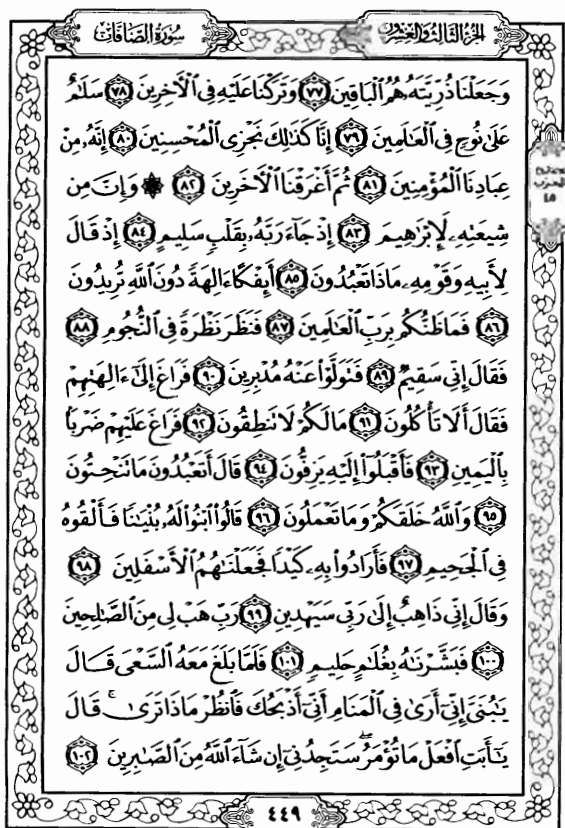 سُورَةُ الصَّافَّاتِ
الجُزْءُ الثَّالِثُ وَالعِشْرُونَ
وَجَعَلْنَا ذُرِّيَّتَهُۥ هُمُ ٱلْبَاقِينَ ﴿٧٧﴾ وَتَرَكْنَا عَلَيْهِ فِى ٱلْأَخِرِينَ ﴿٧٨﴾ سَلَٰمٌ
عَلَىٰ نُوحٍ فِى ٱلْعَٰلَمِينَ ﴿٧٩﴾ إِنَّا كَذَٰلِكَ نَجْزِى ٱلْمُحْسِنِينَ ﴿٨٠﴾ إِنَّهُۥ مِنْ
عِبَادِنَا ٱلْمُؤْمِنِينَ ﴿٨١﴾ ثُمَّ أَغْرَقْنَا ٱلْأَخَرِينَ ﴿٨٢﴾ ۞ وَإِنَّ مِن
شِيعَتِهِۦ لَإِبْرَٰهِيمَ ﴿٨٣﴾ إِذْ جَآءَ رَبَّهُۥ بِقَلْبٍ سَلِيمٍ ﴿٨٤﴾ إِذْ قَالَ
لِأَبِيهِ وَقَوْمِهِۦ مَاذَا تَعْبُدُونَ ﴿٨٥﴾ أَئِفْكًا ءَالِهَةً دُونَ ٱللَّهِ تُرِيدُونَ
﴿٨٦﴾ فَمَا ظَنُّكُم بِرَبِّ ٱلْعَٰلَمِينَ ﴿٨٧﴾ فَنَظَرَ نَظْرَةً فِى ٱلنُّجُومِ ﴿٨٨﴾
فَقَالَ إِنِّى سَقِيمٌ ﴿٨٩﴾ فَتَوَلَّوْا۟ عَنْهُ مُدْبِرِينَ ﴿٩٠﴾ فَرَاغَ إِلَىٰٓ ءَالِهَتِهِمْ
فَقَالَ أَلَا تَأْكُلُونَ ﴿٩١﴾ مَا لَكُمْ لَا تَنطِقُونَ ﴿٩٢﴾ فَرَاغَ عَلَيْهِمْ ضَرْبًۢا
بِٱلْيَمِينِ ﴿٩٣﴾ فَأَقْبَلُوٓا۟ إِلَيْهِ يَزِفُّونَ ﴿٩٤﴾ قَالَ أَتَعْبُدُونَ مَا تَنْحِتُونَ
﴿٩٥﴾ وَٱللَّهُ خَلَقَكُمْ وَمَا تَعْمَلُونَ ﴿٩٦﴾ قَالُوا۟ ٱبْنُوا۟ لَهُۥ بُنْيَٰنًا فَأَلْقُوهُ
فِى ٱلْجَحِيمِ ﴿٩٧﴾ فَأَرَادُوا۟ بِهِۦ كَيْدًا فَجَعَلْنَٰهُمُ ٱلْأَسْفَلِينَ ﴿٩٨﴾
وَقَالَ إِنِّى ذَاهِبٌ إِلَىٰ رَبِّى سَيَهْدِينِ ﴿٩٩﴾ رَبِّ هَبْ لِى مِنَ ٱلصَّٰلِحِينَ
﴿١٠٠﴾ فَبَشَّرْنَٰهُ بِغُلَٰمٍ حَلِيمٍ ﴿١٠١﴾ فَلَمَّا بَلَغَ مَعَهُ ٱلسَّعْىَ قَالَ
يَٰبُنَىَّ إِنِّىٓ أَرَىٰ فِى ٱلْمَنَامِ أَنِّىٓ أَذْبَحُكَ فَٱنظُرْ مَاذَا تَرَىٰ ۚ قَالَ
يَٰٓأَبَتِ ٱفْعَلْ مَا تُؤْمَرُ ۖ سَتَجِدُنِىٓ إِن شَآءَ ٱللَّهُ مِنَ ٱلصَّٰبِرِينَ ﴿١٠٢﴾
الحزب
٤٥
٤٤٩